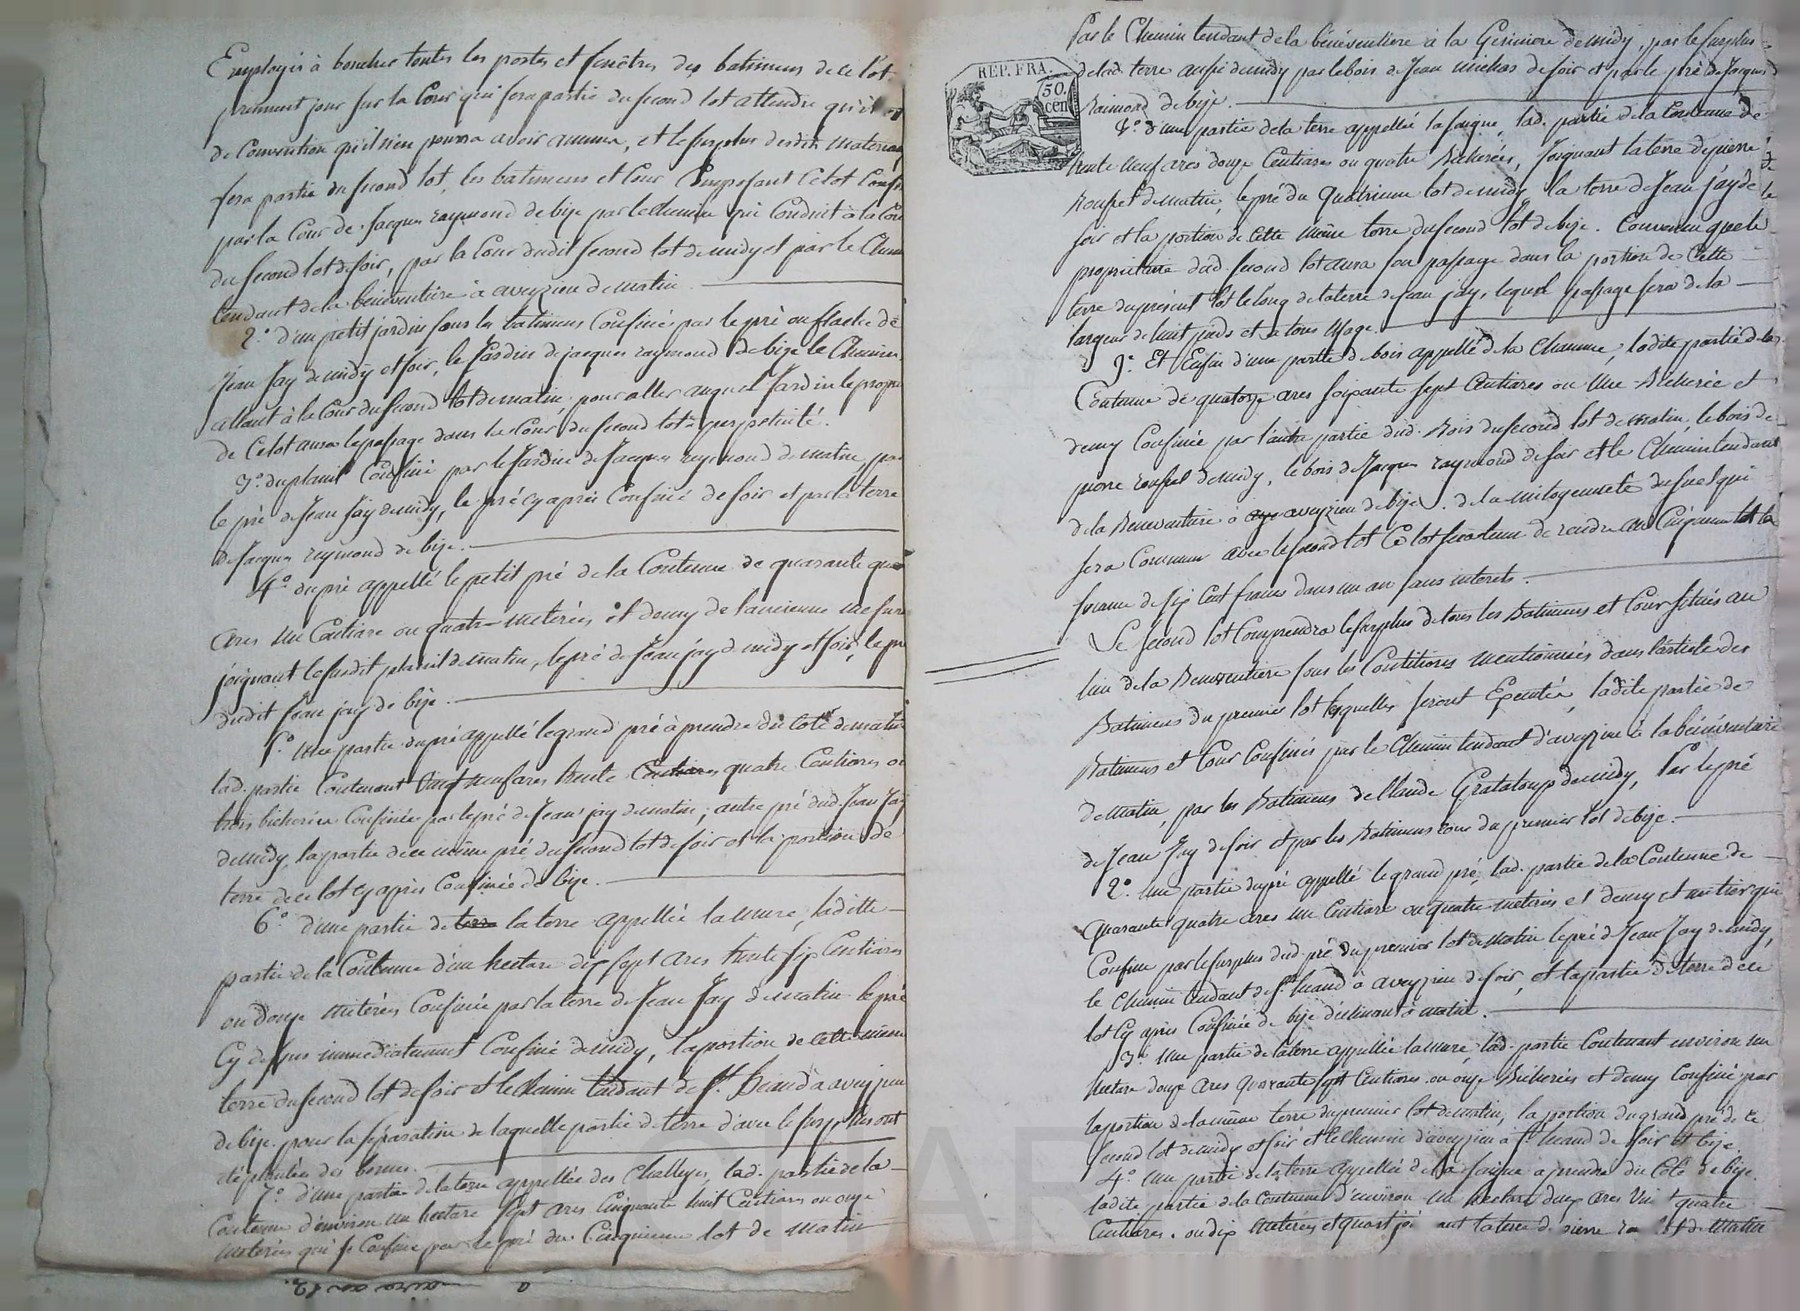 Employés à boucher toutes les portes et fenêtres des batimens de ce lot
prennent jour sur la Cour qui fera partie du second lot attendu qu'il
de Convention qu'il n'en pourra avoir aucune, et le surplus desdits Materiaux
fera partie du second lot, les batimens et Cour Composant Ce lot Conf
par la Cour de Jacques raymond de bize par le chemin qui Conduit à la Cour
du second lot de soir, par la Cour dudit second lot de midy et par le Chemin
tendant de la bénéventière à aveyzieu de matin.
2.° d'un petit jardin sous les batimens Confiné par le pré ou flache de
Jean Jay de midy et soir, le Jardin de jacques raymond de bize le Chemin
allant à la Cour du second lot de matin pour aller auquel Jardin le propri
de Ce lot aura le passage dans la Cour du second lot à perpétuité.
3.° du plansil Confiné par le Jardin de Jacques raymond de matin, par
le pré de Jean Jay de midy, le pré cy après Confiné de soir et par la terre
de Jacques raymond de bize.
4.° du pré appellé le petit pré de la Contenue de quarante quatre
ares un Centiare ou quatre metérées et demy de l'ancienne mesure
joignant le susdit plansil de matin, le pré de Jean jay de midy et soir, le pré
dudit Jean jay de bize.
5.° une partie du pré appellé le grand pré à prendre du coté de matin
lad. partie Contenant vingt neuf ares trente Centiares quatre Centiares ou
trois bicherées Confinée par le pré de Jean jay de matin; autre pré dud. Jean Jay
de midy, la partie de ce même pré du second lot de soir et la portion de
terre de ce lot cy après Confinée de bize.
6.° d'une partie de terre la terre appellée la mure, ladite
partie de la Contenue d'un hectare dix sept ares trente six Centiares
ou douze metérées Confinée par la terre de Jean Jay de matin le pré
Cy dessus immédiatement Confiné de midy, la portion de cette même
terre du second lot de soir et le chemin tendant de St. heand à aveyzieu
de bize. pour la séparation de laquelle partie de terre d'avec le surplus ont
été plantées des bornes.
7.° d'une partie de la terre appellée des Challeyes, lad. partie de la
Contenue d'environ un hectare sept ares Cinquante huit Centiares ou onze
metérées qui se Confine par le pré du Cinquieme lot de matin
REP. FRA.
50.
cen
Par le Chemin tendant de la bénéventière à la Gérinière de midy, par le surplus
de lad. terre aussi de midy par le bois de Jean michas de soir et par le pré de Jacques
Raimond de bize.
8.° d'une partie de la terre appellée la faigue, lad. partie de la Contenue de
trente neuf ares douze Centiares ou quatre Bicherées, Joignant la terre de pierre
Koupret de matin, le pré du quatrieme lot de midy la terre de Jean jay de
soir et la portion de Cette même terre du second lot de bize. Convenu que le
propriétaire dud. second lot aura son passage dans la portion de Cette
terre du présent lot le long de la terre de Jean jay, lequel passage sera de la
largeur de huit pieds et a tous usage.
9.° Et Enfin d'une partie de bois appellé de la Chaume, ladite partie de la
Contenue de quatorze ares soixante sept Centiares ou une Bicherée et
demy Confinée par l'autre partie dud. Bois du second lot de matin, le bois de
pierre roupret de midy, le bois de Jacques raymond de soir et le Chemin tendant
de la Benevantiere à aye aveyzieu de bize. de la mitoyenneté duquel qui
sera Commun avec le second lot Ce lot sera tenu de rendre au Cinquieme lot la
somme de six Cent francs dans un an sans interets.
Le second lot Comprendra le surplus de tous les Batimens et Cour situés au
lieu de la Benevantiere sous les Conditions mentionnées dans l'article des
Batimens du premier lot lesquelles seront Executées, ladite partie de
Batimens et Cour Confinés par le Chemin tendant d'aveyzieu à la bénéventière
de matin, par les Batimens de Claude Grataloup de midy, Par le pré
de Jean Jay de soir et par les Batimens Cour du premier lot de bize.
2.° une partie du pré appellé le grand pré, lad. partie de la Contenue de
quarante quatre ares un Centiare ou quatre metérées et demy et un tier qui
Confine par le surplus dud. pré du premier lot de matin le pré de Jean Jay de midy,
le Chemin tendant de St. heand à aveyzieu de soir, et la partie de terre de ce
lot Cy après Confinée de bize déclinant à matin.
3.° une partie de la terre appellée la mure, lad. partie Contenant environ un
hectare douze ares quarante sept Centiares ou onze Bicherées et demy Confiné par
la portion de la même terre du premier lot de matin, la portion du grand pré de ce
second lot de midy et soir et le Chemin d'aveyzieu à St. heand de soir et bize.
4.° une partie de la terre appellée de la faigue a prendre du Coté de bize
ladite partie de la Contenue d'environ un hectare deux ares vingt quatre
Centiares. ou dix metérées et quart joi ant la terre de pierre ro t de matin